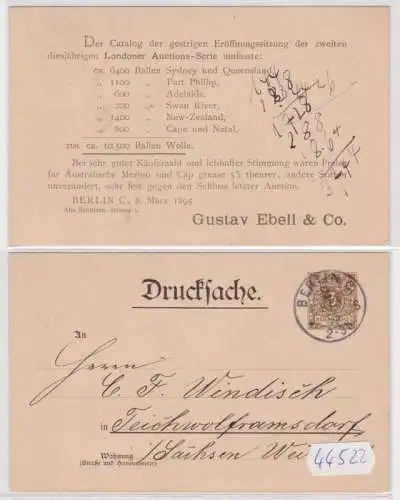 Der Catalog der gestrigen Eröffnungssitzung der zweiten
diesjährigen Londoner Auctions-Serie umfasste:
ca. 6400 Ballen Sydney und Queensland,
„ 1100 „ Port Phillip,
„ 600 „ Adelaide,
„ 200 „ Swan River,
„ 1400 „ New-Zealand,
„ 800 „ Cape und Natal,
zus. ca. 10,500 Ballen Wolle.
Bei sehr guter Käuferzahl und lebhafter Stimmung waren Preise
für Australische Merino und Cap grease 5% theurer, andere Sorten
unverändert, sehr fest gegen den Schluss letzter Auction.
BERLIN C., 8. März 1895
Gustav Ebell & Co.
Drucksache.
BERLIN C
An
Herrn
C. F. Windisch
in Teichwolframsdorf
Wohnung Sachsen Wei
(Straße und Hausnummer)
44522